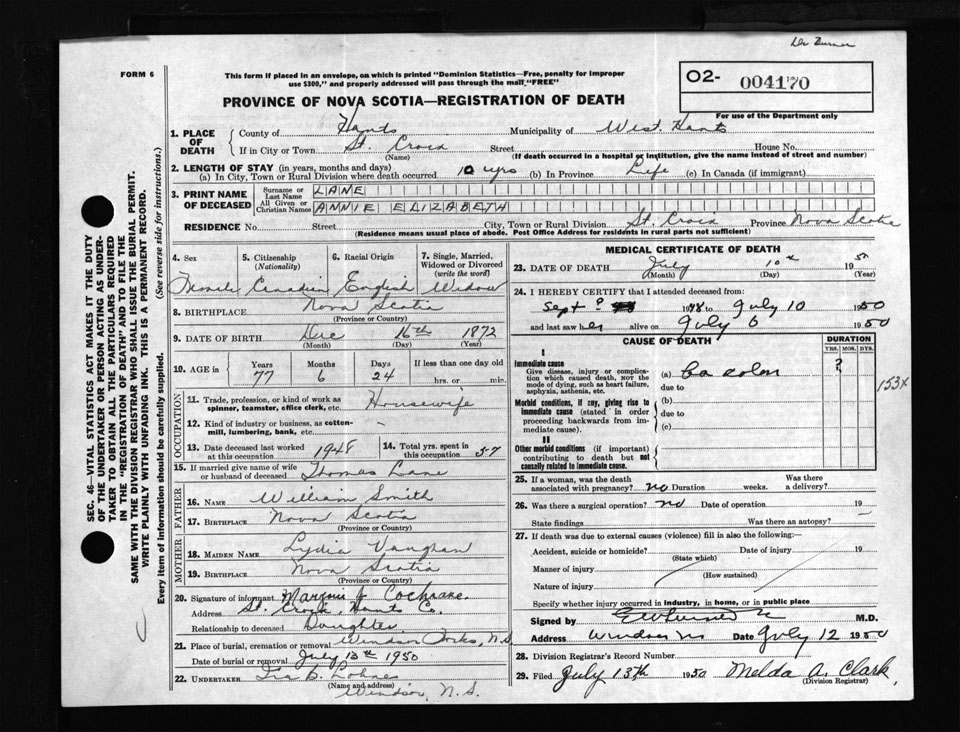 Dr Turner
FORM 6
This form if placed in an envelope, on which is printed "Dominion Statistics—Free, penalty for improper
use $300," and properly addressed will pass through the mail "FREE"
PROVINCE OF NOVA SCOTIA—REGISTRATION OF DEATH
O2- 004170
For use of the Department only
1. PLACE OF DEATH
County of Hants Municipality of West Hants
If in City or Town St. Croix Street House No.
(Name) (If death occurred in a hospital or institution, give the name instead of street and number)
2. LENGTH OF STAY (in years, months and days)
(a) In City, Town or Rural Division where death occurred 10 yrs (b) In Province Life (c) In Canada (if immigrant)
3. PRINT NAME OF DECEASED
Surname or Last Name LANE
All Given or Christian Names ANNIE ELIZABETH
RESIDENCE No. Street City, Town or Rural Division St. Croix Province Nova Scotia
(Residence means usual place of abode. Post Office Address for residents in rural parts not sufficient)
4. Sex 5. Citizenship (Nationality) 6. Racial Origin 7. Single, Married, Widowed or Divorced (write the word)
Female Canadian English Widow
8. BIRTHPLACE Nova Scotia
(Province or Country)
9. DATE OF BIRTH Dec 16th 1872
(Month) (Day) (Year)
10. AGE in Years Months Days If less than one day old
77 6 24 hrs. or min.
OCCUPATION
11. Trade, profession, or kind of work as spinner, teamster, office clerk, etc. Housewife
12. Kind of industry or business, as cotton-mill, lumbering, bank, etc. -
13. Date deceased last worked at this occupation 1948 14. Total yrs. spent in this occupation 57
15. If married give name of wife or husband of deceased Thomas Lane
FATHER
16. NAME William Smith
17. BIRTHPLACE Nova Scotia
(Province or Country)
MOTHER
18. MAIDEN NAME Lydia Vaughan
19. BIRTHPLACE Nova Scotia
(Province or Country)
20. Signature of informant J. Cochrane.
Address St. Croix, Hants Co.
Relationship to deceased Daughter
21. Place of burial, cremation or removal Windsor Forks, N.S.
Date of burial or removal July 13th 1950
22. UNDERTAKER Ira B. Lohnes
(Name and address)
Windsor, N.S.
MEDICAL CERTIFICATE OF DEATH
23. DATE OF DEATH July 10th 1950
(Month) (Day) (Year)
24. I HEREBY CERTIFY that I attended deceased from:
Sept ? 1948 to July 10 1950
and last saw her alive on July 6 1950
CAUSE OF DEATH
DURATION
YRS. MOS. DYS.
I
Immediate cause
Give disease, injury or complication which caused death, not the mode of dying, such as heart failure, asphyxia, asthenia, etc.
(a) Ca colon ?
due to
153X
Morbid conditions, if any, giving rise to immediate cause (stated in order proceeding backwards from immediate cause).
(b)
due to
(c)
II
Other morbid conditions (if important) contributing to death but not causally related to immediate cause.
25. If a woman, was the death associated with pregnancy? no Duration weeks. Was there a delivery?
26. Was there a surgical operation? no Date of operation 19
State findings Was there an autopsy?
27. If death was due to external causes (violence) fill in also the following:—
Accident, suicide or homicide? Date of injury 19
(State which)
Manner of injury
(How sustained)
Nature of injury
Specify whether injury occurred in industry, in home, or in public place
Signed by M.D.
Address Windsor NS Date July 12 1950
28. Division Registrar's Record Number
29. Filed July 13th 1950 Melda A. Clark
(Division Registrar)
SEC. 46—VITAL STATISTICS ACT MAKES IT THE DUTY
OF THE UNDERTAKER OR PERSON ACTING AS UNDER-
TAKER TO OBTAIN ALL THE PARTICULARS REQUIRED
IN THE "REGISTRATION OF DEATH" AND TO FILE THE
SAME WITH THE DIVISION REGISTRAR WHO SHALL ISSUE THE BURIAL PERMIT.
WRITE PLAINLY WITH UNFADING INK. THIS IS A PERMANENT RECORD.
Every item of information should be carefully supplied. (See reverse side for instructions.)